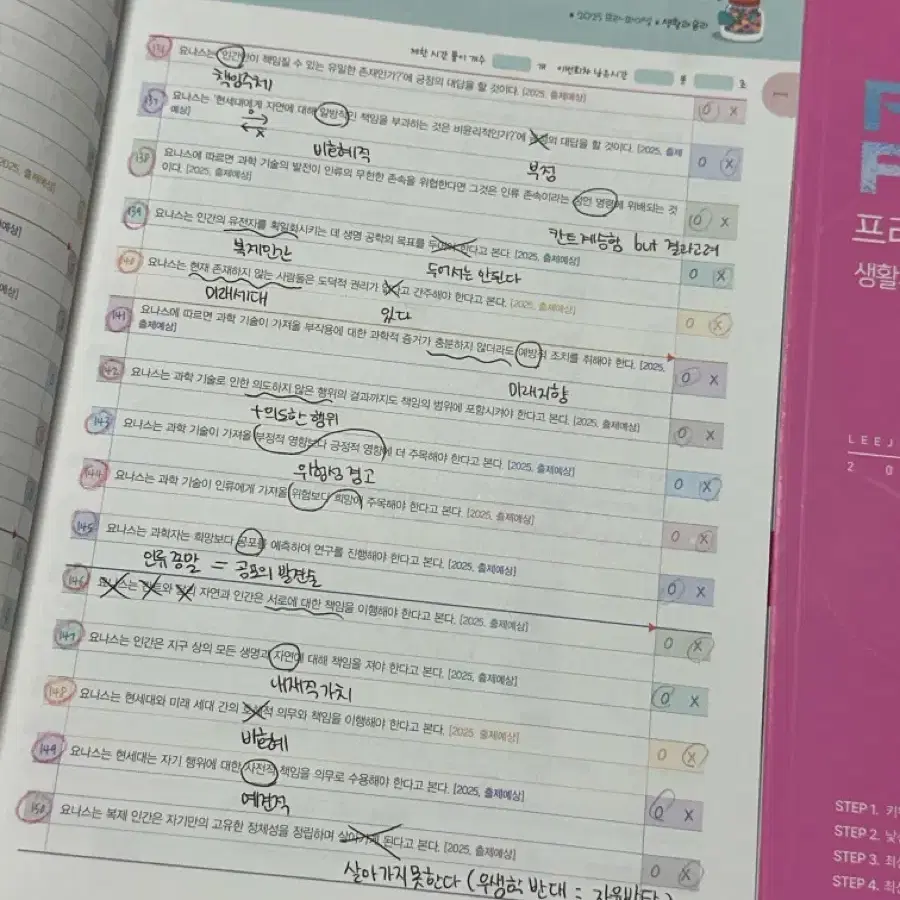 2025 프리-파이널 x 생활과 윤리
제한 시간 풀이 개수 개 이번회차 남은시간 분 초
1
136 요나스는 '인간만이 책임질 수 있는 유일한 존재인가?'에 긍정의 대답을 할 것이다. [2025, 출제예상] O X
책임주체
137 요나스는 '현세대에게 자연에 대해 일방적인 책임을 부과하는 것은 비윤리적인가?'에 의 대답을 할 것이다. [2025, 출제
예상] O X
비호혜적 부정
138 요나스에 따르면 과학 기술의 발전이 인류의 무한한 존속을 위협한다면 그것은 인류 존속이라는 정언 명령에 위배되는 것
이다. [2025, 출제예상] O X
칸트 계승함 but 결과고려
139 요나스는 인간의 유전자를 획일화시키는 데 생명 공학의 목표를 두어야 한다고 본다. [2025, 출제예상] O X
복제인간 두어서는 안된다
140 요나스는 현재 존재하지 않는 사람들은 도덕적 권리가 없다고 간주해야 한다고 본다. [2025, 출제예상] O X
미래세대 있다
141 요나스에 따르면 과학 기술이 가져올 부작용에 대한 과학적 증거가 충분하지 않더라도 예방적 조치를 취해야 한다. [2025,
출제예상] O X
미래지향
142 요나스는 과학 기술로 인한 의도하지 않은 행위의 결과까지도 책임의 범위에 포함시켜야 한다고 본다. [2025, 출제예상] O X
+의도한 행위
143 요나스는 과학 기술이 가져올 부정적 영향보다 긍정적 영향에 더 주목해야 한다고 본다. [2025, 출제예상] O X
위험성 경고
144 요나스는 과학 기술이 인류에게 가져올 위험보다 희망에 주목해야 한다고 본다. [2025, 출제예상] O X
145 요나스는 과학자는 희망보다 공포를 예측하여 연구를 진행해야 한다고 본다. [2025, 출제예상] O X
인류 종말 = 공포의 발견술
146 요나스는 칸트와 달리 자연과 인간은 서로에 대한 책임을 이행해야 한다고 본다. [2025, 출제예상] O X
147 요나스는 인간은 지구 상의 모든 생명과 자연에 대해 책임을 져야 한다고 본다. [2025, 출제예상] O X
내재적 가치
148 요나스는 현세대와 미래 세대 간의 호혜적 의무와 책임을 이행해야 한다고 본다. [2025 출제예상] O X
비호혜
149 요나스는 현세대는 자기 행위에 대한 사전적 책임을 의무로 수용해야 한다고 본다. [2025, 출제예상] O X
예견적
150 요나스는 복제 인간은 자기만의 고유한 정체성을 정립하며 살아가게 된다고 본다. [2025, 출제예상] O X
살아가지 못한다 (우생학 반대 =
프리
생활
LEEJ
2 0
STEP 1. 키
STEP 2. 낯
STEP 3. 최
STEP 4. 최